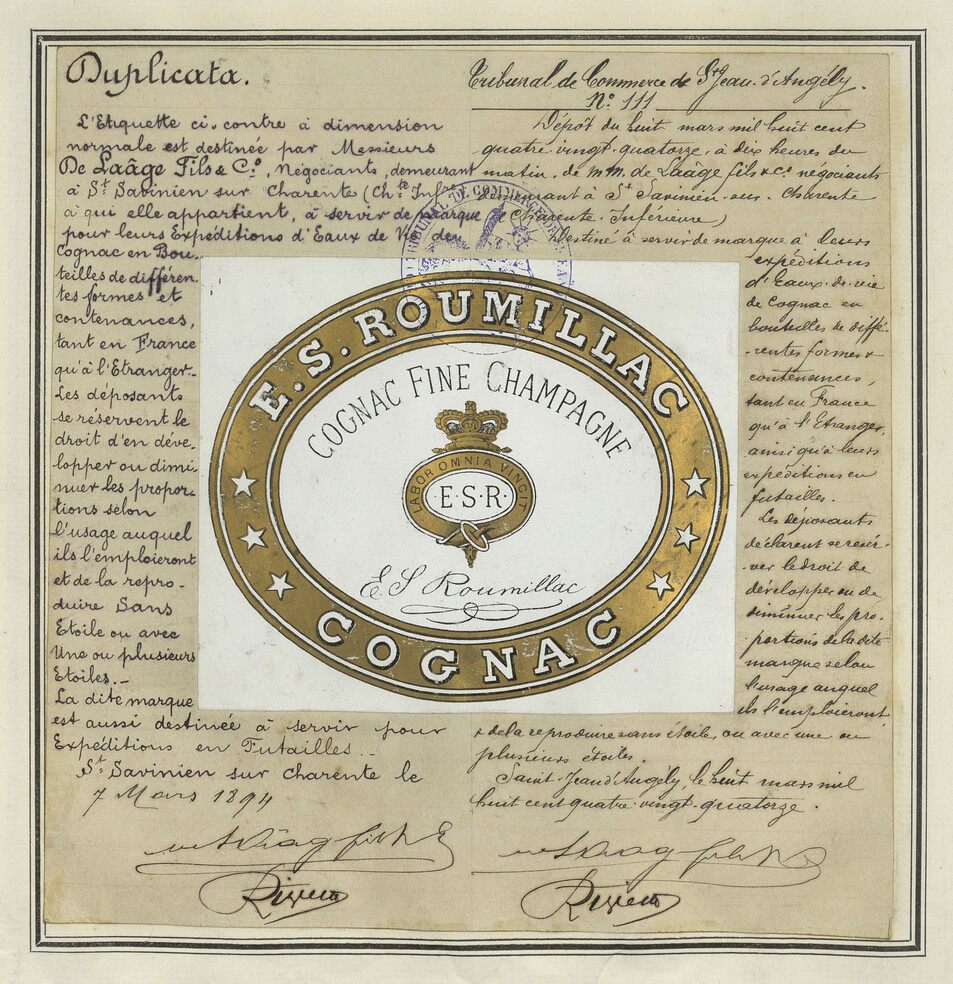 Duplicata.
L'Etiquette ci-contre à dimension
normale est destinée par Messieurs
De Laâge Fils & Cº, Négociants, demeurant
à St Savinien sur Charente (Chte Infre
à qui elle appartient, à servir de marque
pour leurs Expéditions d'Eaux de Vie de
Cognac en Bou-
teilles de différen-
tes formes et
contenances,
tant en France
qu'à l'Etranger.-
Les déposants
se réservent le
droit d'en déve-
lopper ou dimi-
nuer les propor-
tions selon
l'usage auquel
ils l'emploieront
et de la repro-
duire Sans
Etoile ou avec
Une ou plusieurs
Etoiles.-
La dite marque
est aussi destinée à servir pour
Expéditions en Futailles.-
St Savinien sur Charente le
7 Mars 1894
Tribunal de Commerce de St Jean-d'Angély.
Nº 111
Dépôt du huit mars mil huit cent
quatre-vingt-quatorze, à dix heures du
matin, de mm. de Laâge fils & Cº négociants
demeurant à St Savinien-sur-Charente
(Charente-Inférieure)
Destiné à servir de marque à leurs
expéditions
d'Eaux-de-vie
de Cognac en
bouteilles de diffé-
-rentes formes &
contenances,
tant en France
qu'à l'Etranger,
ainsi qu'à leurs
expéditions en
futailles.
Les déposants
déclarent se réser-
-ver le droit de
développer ou de
diminuer les pro-
portions de la dite
marque selon
l'usage auquel
ils l'emploieront,
& de la reproduire sans étoile, ou avec une ou
plusieurs étoiles.
Saint-Jean d'Angély, le huit mars mil
huit cent quatre-vingt-quatorze.
TRIBUNAL DE COMMERCE
E.S. ROUMILLAC
COGNAC FINE CHAMPAGNE
LABOR OMNIA VINCIT
E·S·R·
E S Roumillac
COGNAC